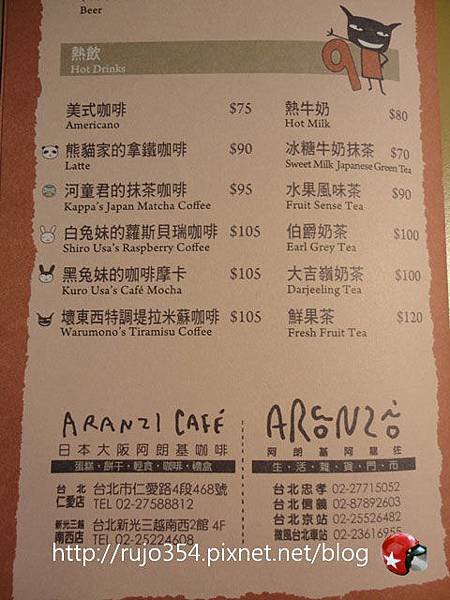 Beer
熱飲
Hot Drinks
美式咖啡 $75
Americano
熊貓家的拿鐵咖啡 $90
Latte
河童君的抹茶咖啡 $95
Kappa's Japan Matcha Coffee
白兔妹的蘿斯貝瑞咖啡 $105
Shiro Usa's Raspberry Coffee
黑兔妹的咖啡摩卡 $105
Kuro Usa's Café Mocha
壞東西特調堤拉米蘇咖啡 $105
Warumono's Tiramisu Coffee
熱牛奶 $80
Hot Milk
冰糖牛奶抹茶 $70
Sweet Milk Japanese Green Tea
水果風味茶 $90
Fruit Sense Tea
伯爵奶茶 $100
Earl Grey Tea
大吉嶺奶茶 $100
Darjeeling Tea
鮮果茶 $120
Fresh Fruit Tea
ARANZI CAFÉ
日本大阪阿朗基咖啡
蛋糕·餅干·輕食·咖啡·禮盒
台北仁愛店 台北市仁愛路4段468號
TEL 02-27588812
新光三越南西店 台北新光三越南西2館 4F
TEL 02-25224608
ARONZO
阿朗基阿龍佐
生·活·雜·貨·門·市
台北忠孝 02-27715052
台北信義 02-87892603
台北京站 02-25526482
微風台北車站 02-23616955
http://rujo354.pixnet.net/blog